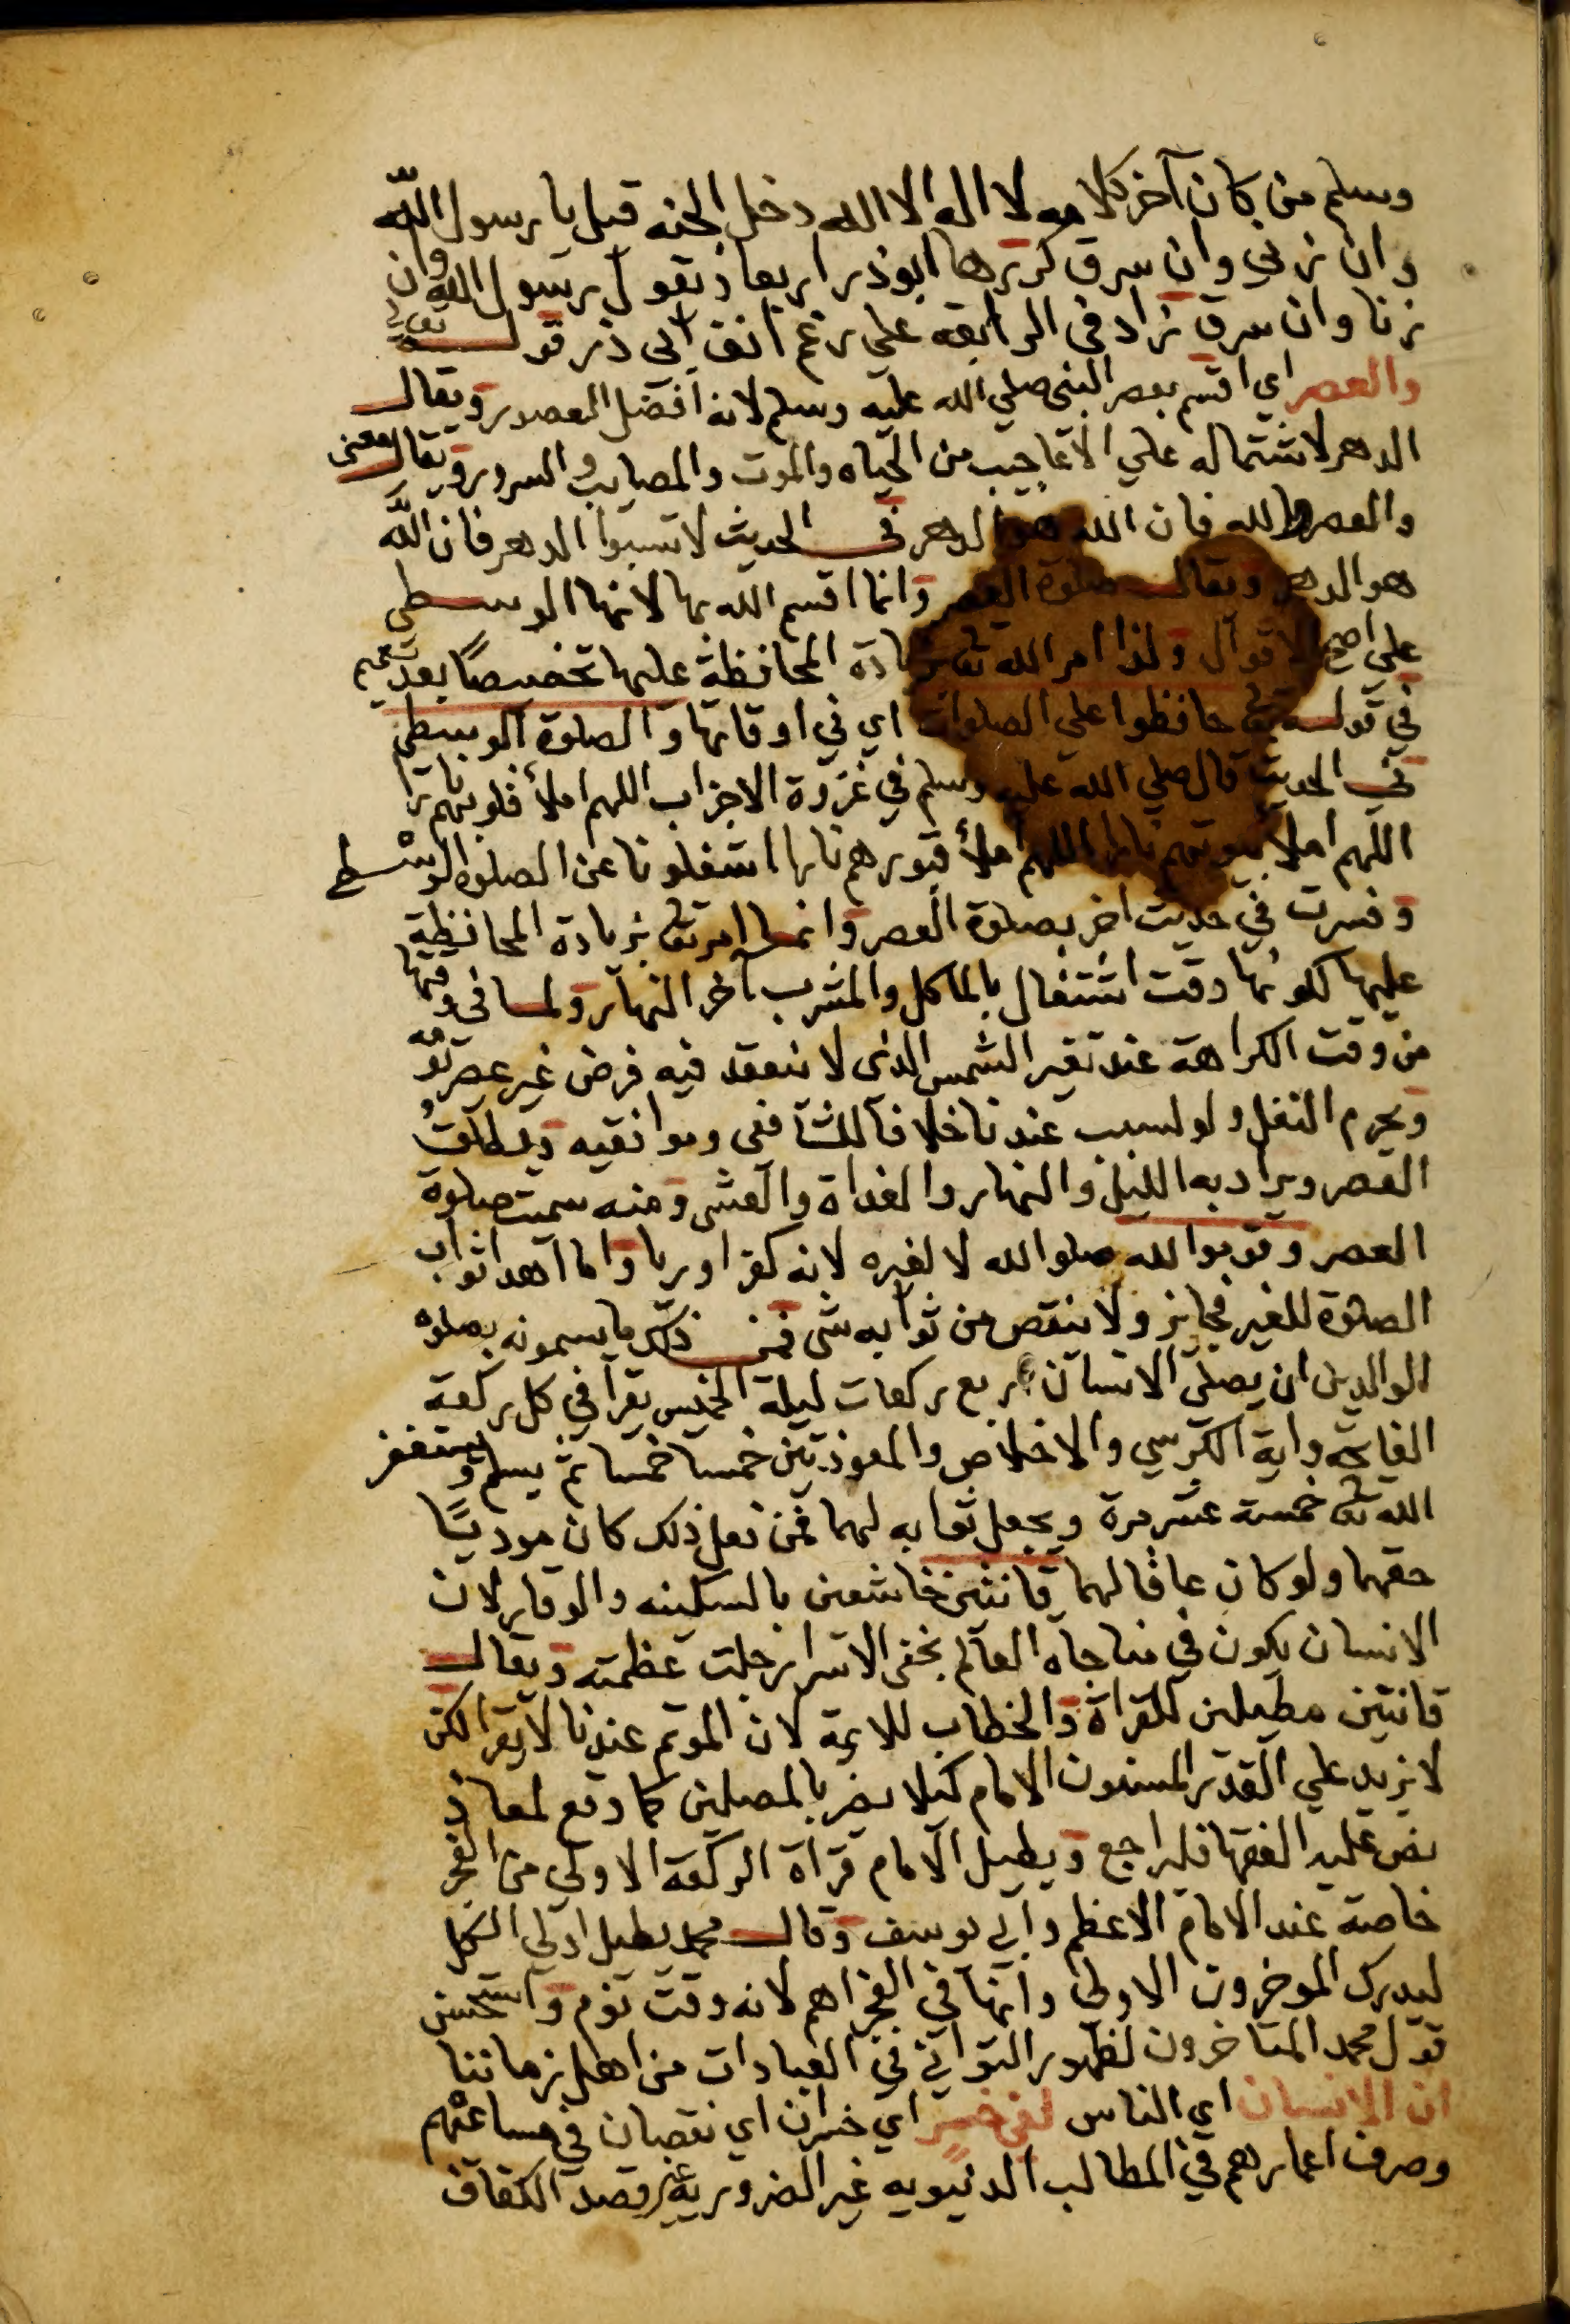 وسلم من كان آخر كلامه لا اله الا الله دخل الجنه قيل يا رسول الله
وان زنى وان سرق كررها ابوذر اربعا ويقول رسول الله وان
زنا وان سرق زاد في الرابعه علي رغم انف ابي ذر قوله تعالى
والعصر اي اقسم بعصر النبي صلي الله عليه وسلم لانه افضل العصور ويقال
الدهر لاشتماله علي الاعاجيب من الحياه والموت والمصايب والسرور ويقال معنى
والعصر والله فان الله هو الدهر في الحديث لا تسبوا الدهر فان الله
هو الدهر ويقال صلوة العصر وانما اقسم الله بها لانها الوسطي
علي اصح الاقوال ولذا امر الله تعا بزيادة المحافظة عليها تخصيصا بعد تعميم
في قوله تعا حافظوا علي الصلوات اي في اوقاتها والصلوة الوسطي
في الحديث قال صلي الله عليه وسلم في غزوة الاحزاب اللهم املأ قلوبهم نارا
اللهم املأ بيوتهم نارا اللهم املأ قبورهم نارا اشغلونا عن الصلوة الوسطي
وفسرت في حديث اخر بصلوة العصر وانما امر تعا بزيادة المحافظة
عليها لكونها وقت اشتغال بالماكل والمشرب آخر النهار ولما في وقتها
من وقت الكراهة عند تغير الشمس الذي لا ينعقد فيه فرض غير عصر يومه
ويحرم النفل ولو لسبب عندنا خلافا للشافعي وموافقيه ويطلق
العصر ويراد به الليل والنهار والغداة والعشي ومنه سميت صلوة
العصر وقوموا لله صلوا لله لا لغيره لانه كفر او ريا واما اهدا ثواب
الصلوة للغير فجايز ولا ينقص من ثوابه شي فمن ذلك ما يسمونه بصلوة
الوالدين ان يصلي الانسان اربع ركعات ليلة الخميس يقرأ في كل ركعة
الفاتحه واية الكرسي والاخلاص والمعوذتين خمسا خمسا ثم يسلم ويستغفر
الله تعا خمسة عشر مرة ويجعل ثوابه لهما فمن فعل ذلك كان موديا
حقهما ولو كان عاقا لهما قانتين خاشعين بالسكينه والوقار لان
الانسان يكون في مناجاه العالم بخفي الاسرار جلت عظمته ويقال
قانتين مطيلين للقراة والخطاب للايمة لان الموتم عندنا لا يقرا لكن
لا يزيد علي القدر المسنون الامام كيلا يضر بالمصلين كما وقع لمعاذ
نص عليه الفقها فليراجع ويطيل الامام قراة الركعة الاولي من الفجر
خاصة عند الامام الاعظم وابي يوسف وقال محمد يطيل اولي الكل
ليدرك الموخرون الاولي وانها في الفجر اهم لانه وقت نوم واستحسن
قول محمد المتاخرون لظهور التواني في العبادات من اهل زماننا
ان الانسان اي الناس لفي خسر اي خسران اي نقصان في مساعيهم
وصرف اعمارهم في المطالب الدنيويه غير الضروريه غير قصد الكفاف